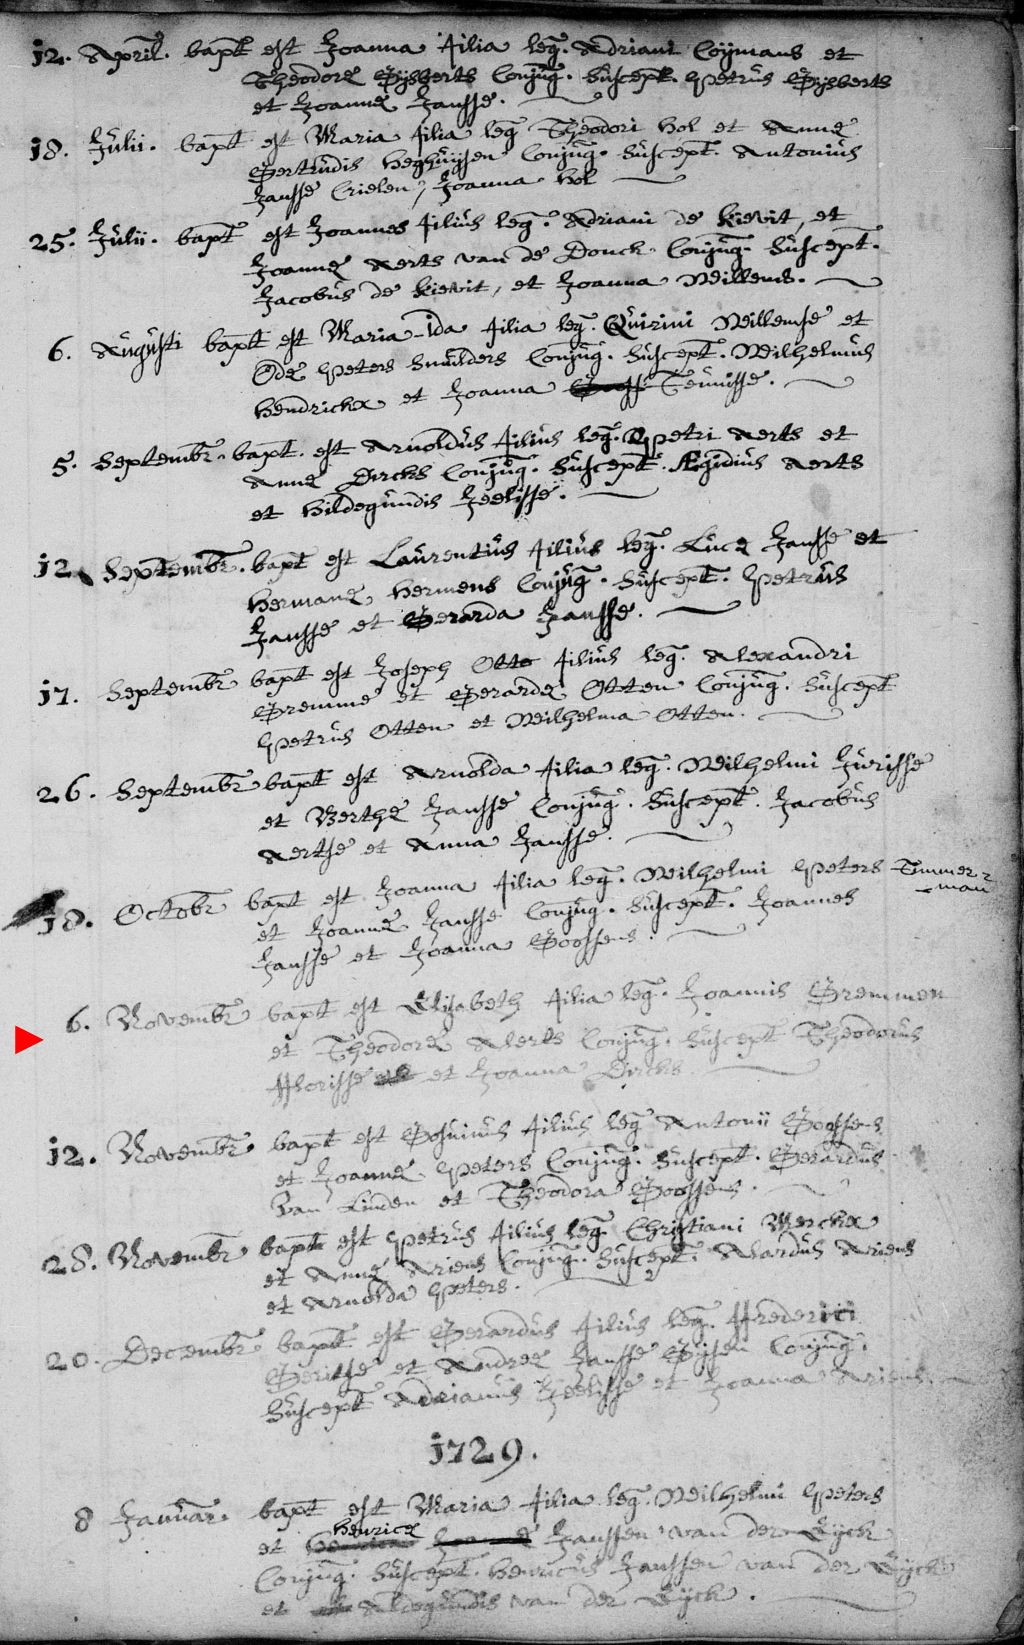 12. April. bapt est Joanna filia leg. Adriani Coymans et
Theodoræ Gijsberts Conjug. Suscept. Petrus Gijsberts
et Joanna Jansse.
18. Julii. bapt est Maria filia leg Theodori Hol et Annæ
Gertrudis Heghuijsen Conjug. Suscept. Antonius
Jansse Crielen, Joanna Hol
25. Julii. bapt est Joannes filius leg. Adriani de Kievit, et
Joannæ Aerts van de Donck Conjug. Suscept.
Jacobus de Kievit, et Joanna Willems.
6. Augusti bapt est Maria-Ida filia leg. Quirini Willemse et
Odæ Peters Smulders Conjug. Suscept. Wilhelmus
Hendrickx et Joanna Teunisse.
5. Septembr. bapt. est Arnoldus filius leg. Petri Aerts et
Annæ Dircks Conjug. Suscept. Ægidius Aerts
et Hildegundis Zeelisse.
12 Septembr. bapt est Laurentius filius leg. Lucæ Jansse et
Hermanæ Hermens Conjug. Suscept. Petrus
Jansse et Gerarda Jansse.
17. Septembr bapt est Joseph Otto filius leg. Alexandri
Gremme et Gerardæ Otten Conjug. Suscept
Petrus Otten et Wilhelma Otten.
26. Septembr bapt est Arnolda filia leg. Wilhelmi Jurisse
et Berthæ Jansse Conjug. Suscept. Jacobus
Aertse et Anna Jansse.
18. Octobr bapt est Joanna filia leg. Wilhelmi Peters Timmer=
man
et Joannæ Jansse Conjug. Suscept. Joannes
Jansse et Joanna Goossens.
6. Novembr bapt est Elisabeth filia leg. Joannis Gremmen
et Theodoræ Aerts Conjug. Suscept Theodorus
Florisse et Joanna Dircks.
12. Novembr. bapt est Gosuinus filius leg Antonii Goossens
et Joannæ Peters Conjug. Suscept. Gerardus
Van Linden et Theodora Goossens.
28. Novembr bapt est Petrus filius leg Christiani Merckx
et Annæ Ariens Conjug. Suscept. Alardus Ariens
et Arnolda Peters.
20. Decembr bapt est Gerardus filius leg. Frederici
Geritse et Andreæ Jansse Gijsen Conjug.
Suscept Adrianus Zeelisse et Joanna Ariens.
1729.
8 Januar. bapt est Maria filia leg. Wilhelmi Peters
et Henricæ Janssen van der Eyck
Conjug. Suscept. Henricus Janssen van der Eyck
et Aldegundis van der Eyck.